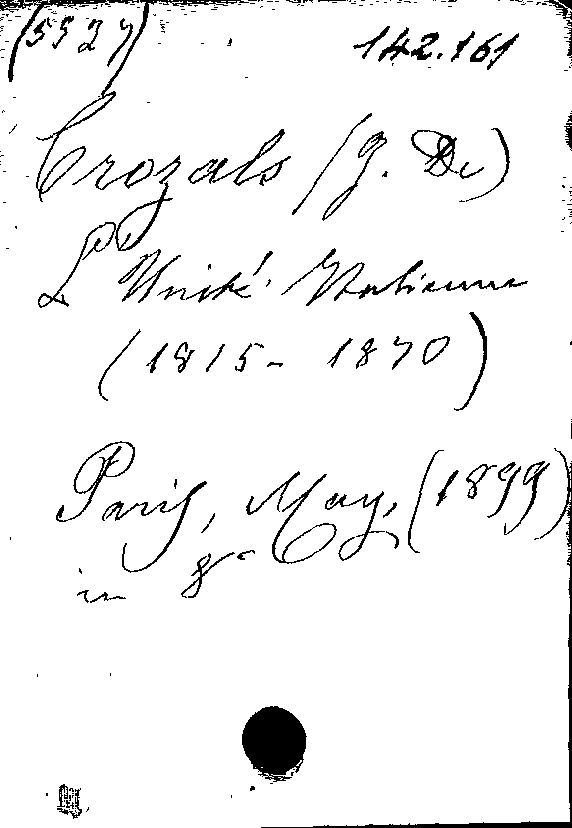 (5527) 142.161
Crozals (J. De)
L'Unité Italienne
(1815- 1870)
Paris, May, (1899)
in 8°